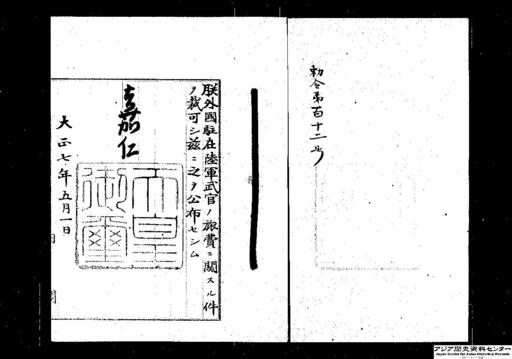 勅令第百十二号
朕外國駐在陸軍武官ノ旅費ニ關スル件
ヲ裁可シ茲ニ之ヲ公布セシム
嘉仁
天皇御璽
大正七年五月一日
アジア歴史資料センター
Japan Center for Asian Historical Records